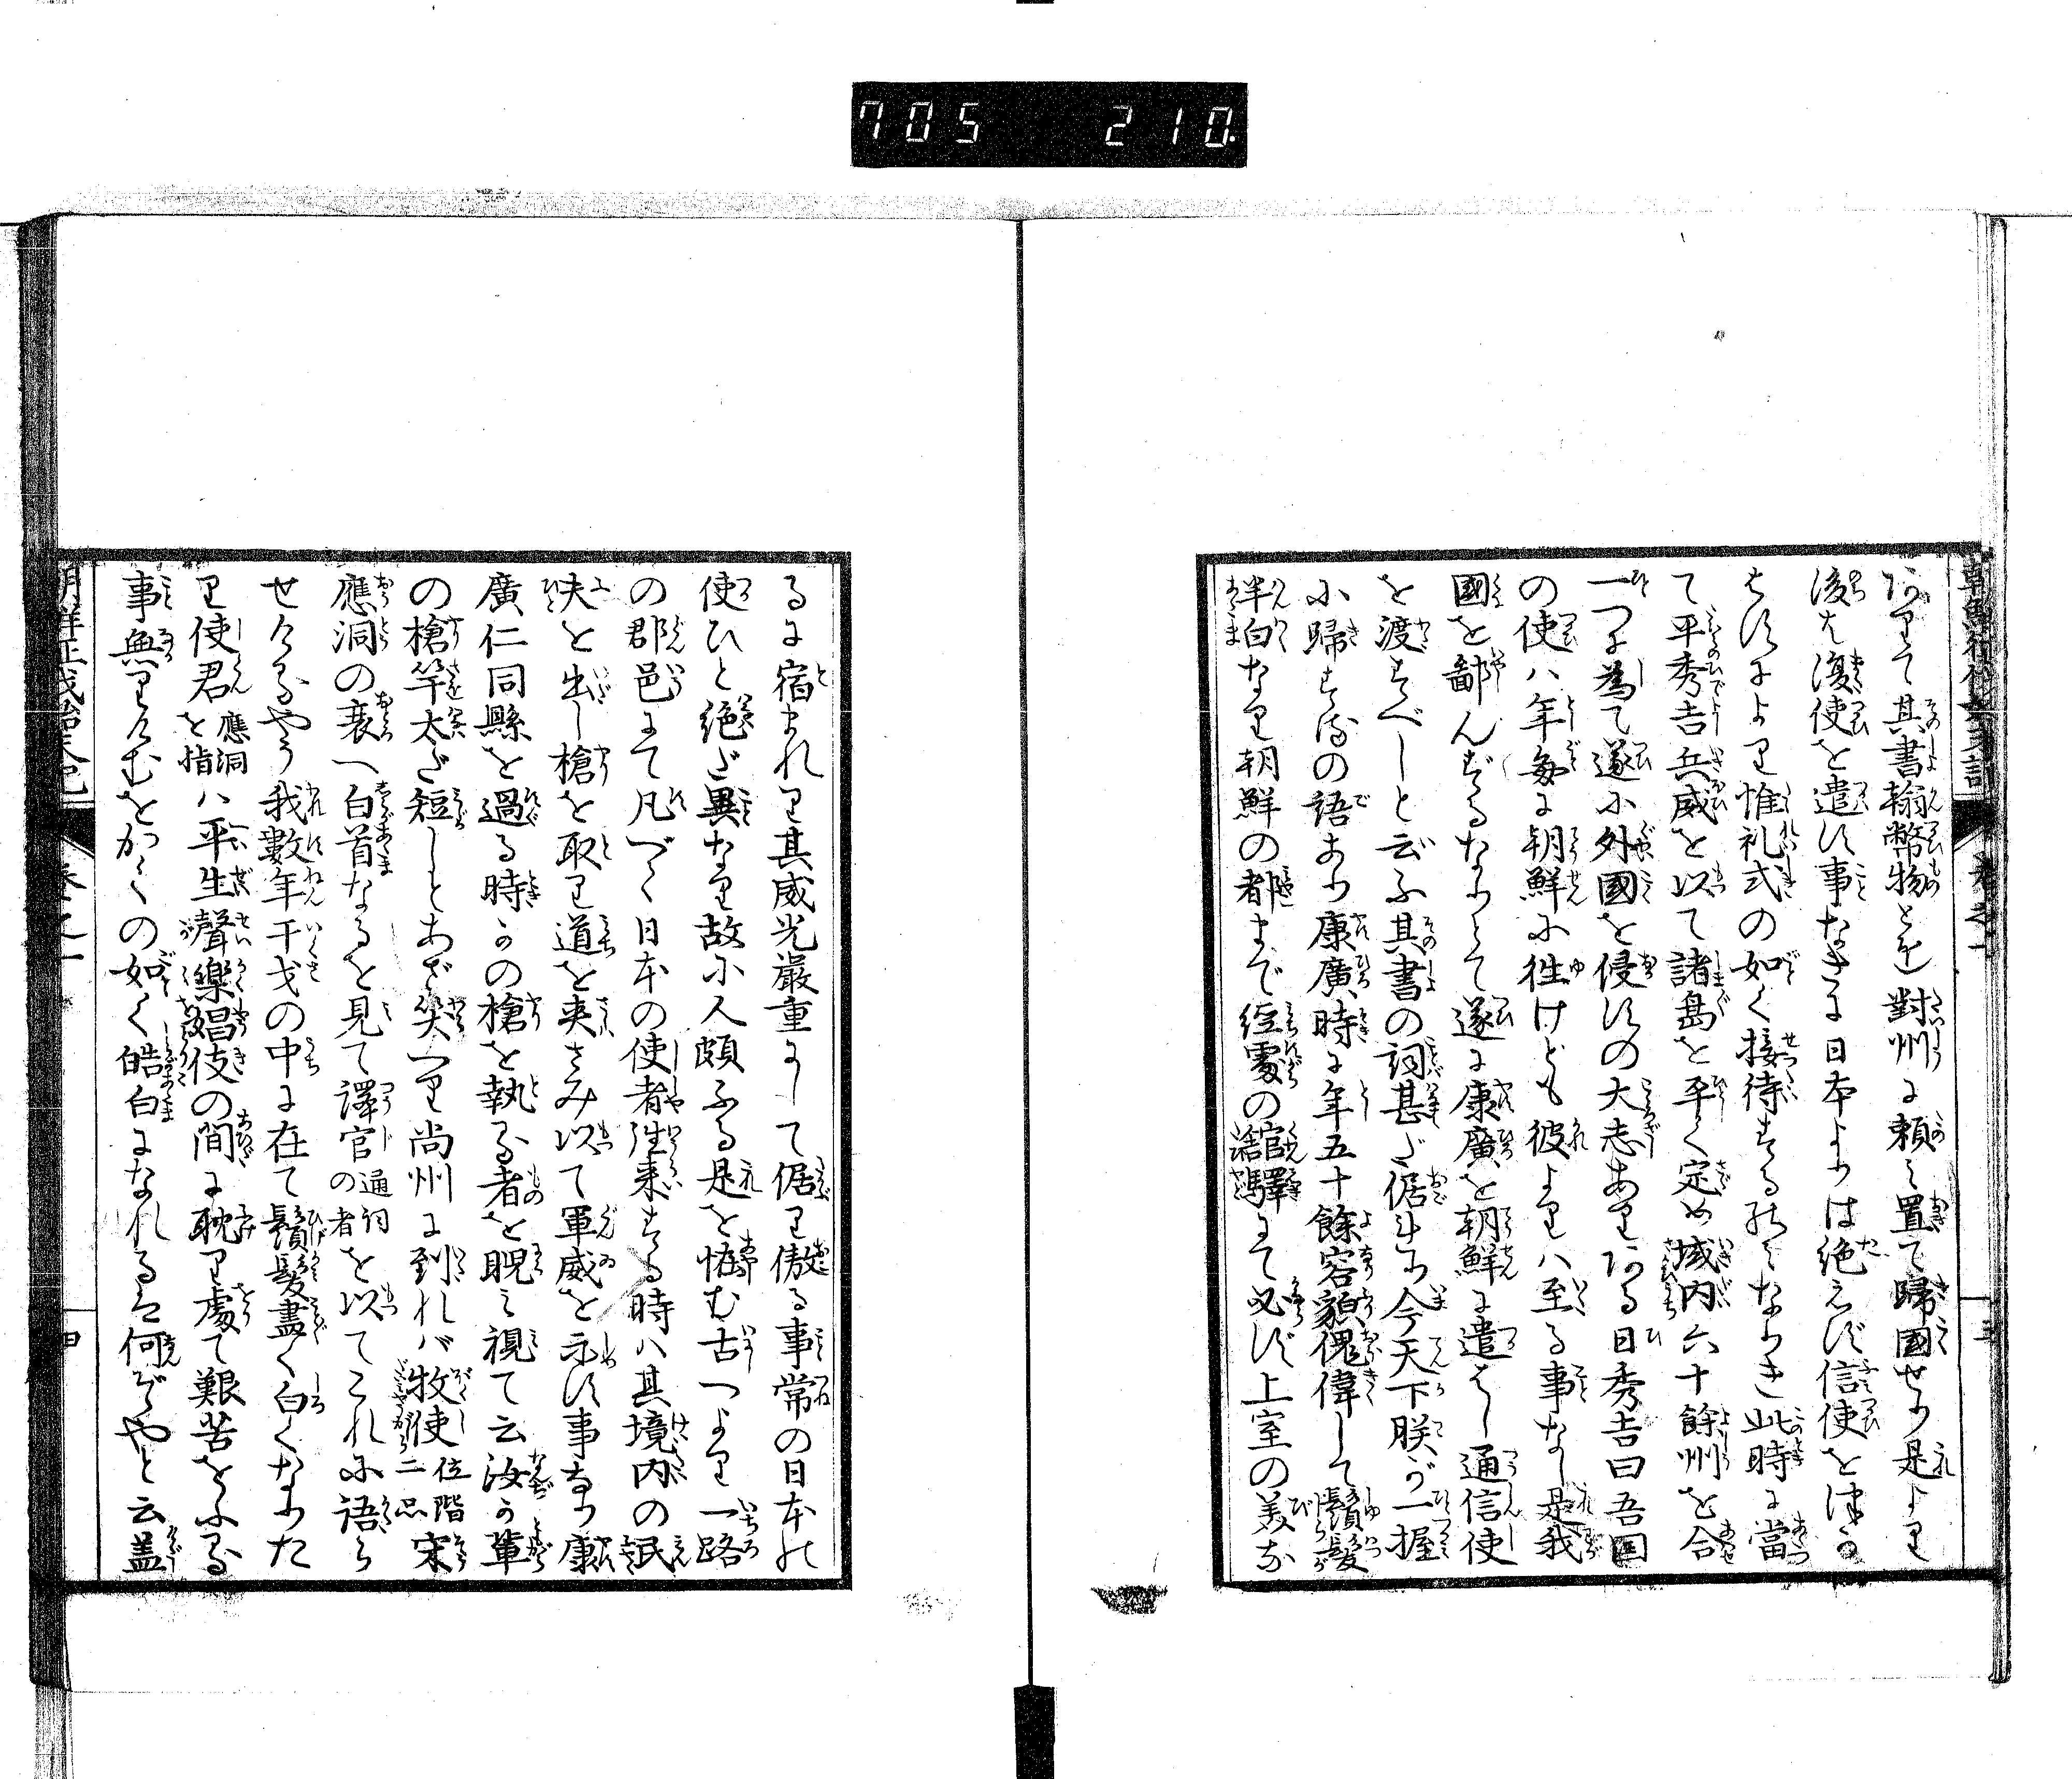 705 210.
りて其書翰幣物とを對州に頼み置て歸國せり是より
後も復使を遣す事なきに日本よりは絶えず信使をつか
はすにより惟礼式の如く接待するのみなりき此時に當
て平秀吉兵威を以て諸島を平く定め域内六十餘州を合
一つに為て遂に外國を侵すの大志あり或る日秀吉曰吾国
の使ハ年毎に朝鮮に徃けども彼よりハ至る事なし是我
國を鄙んずるなりとて遂に康廣を朝鮮に遣はし通信使
を渡すべしと云ふ其書の詞甚だ倨れり今天下朕が一握
に歸するの語あり康廣時に年五十餘容貌傀偉して鬚髮
半白なり朝鮮の都まで經處の舘驛にて必ず上室の美な
るに宿まれり其威光嚴重にして倨り傲る事常の日本の
使ひと絶だ異なり故に人頗ふる是を恠む古つより一路
の郡邑にて凡べて日本の使者往來する時ハ其境内の民
夫を出し槍を取り道を夾さみ以て軍威を示す事なり康
廣仁同縣を過る時かの槍を執る者を睨み視て云汝か輩
の槍竿太だ短しとあざ笑へり尚州に到れバ牧使位階二品宋
應洞の衰へ白首なるを見て譯官通詞の者を以てこれに語ら
せけるやう我數年干戈の中に在て鬚髮盡く白くなりた
り使君應洞を指ハ平生聲樂娼伎の間に耽り處て艱苦をふる
事無りけむをかくの如く皓白になれるは何ぞやと云盖
卷之一
四